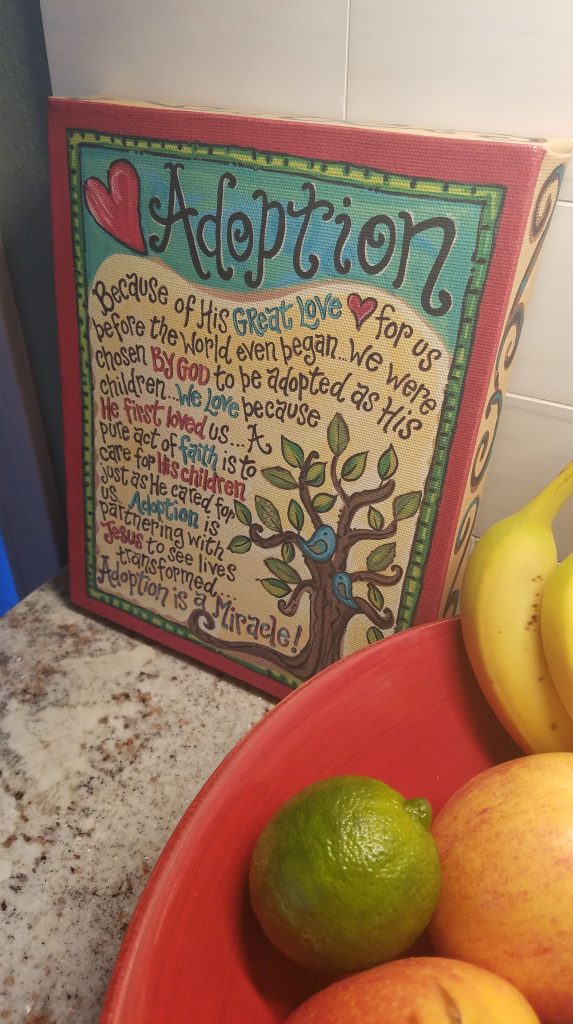 Adoption
Because of His Great Love for us
before the world even began...we were
chosen By God to be adopted as His
children...We Love because
He first loved us...A
pure act of faith is to
care for His children
just as He cared for
us... Adoption is
partnering with
Jesus to see lives
transformed...
Adoption is a Miracle!